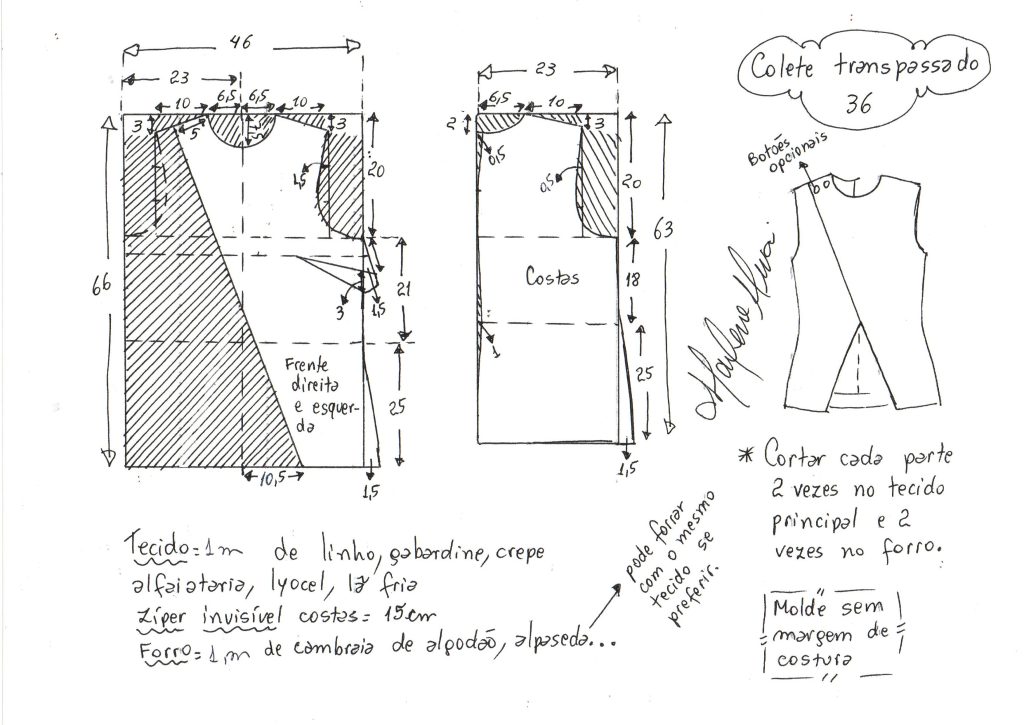 46
23
10
6,5
6,5
10
3
5
7,5
3
1,5
20
66
21
3
1,5
Frente
direita
e esquer-
da
25
10,5
1,5
23
6,5
10
2
3
0,5
0,5
20
63
Costas
18
1
25
1,5
Colete transpassado
36
Botões
opcionais
* Cortar cada parte
2 vezes no tecido
principal e 2
vezes no forro.
Molde sem
margem de
costura
Tecido=1m de linho, gabardine, crepe
alfaiataria, lyocel, lã fria
Zíper invisível costas= 15cm
Forro=1,m de cambraia de algodão, alpaseda...
pode forrar
com o mesmo
tecido se
preferir.